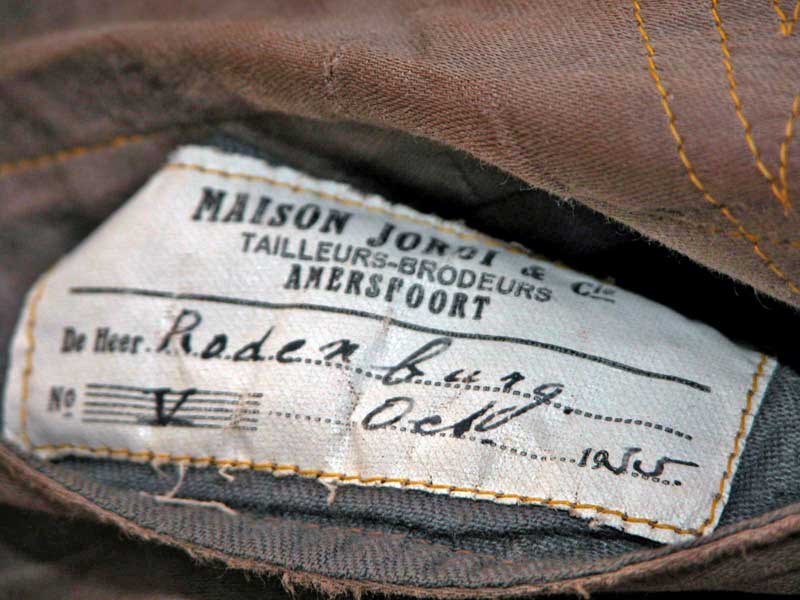 MAISON JORBI & Cie
TAILLEURS-BRODEURS
AMERSFOORT
De Heer Rodenburg.
No V Oct. 1955